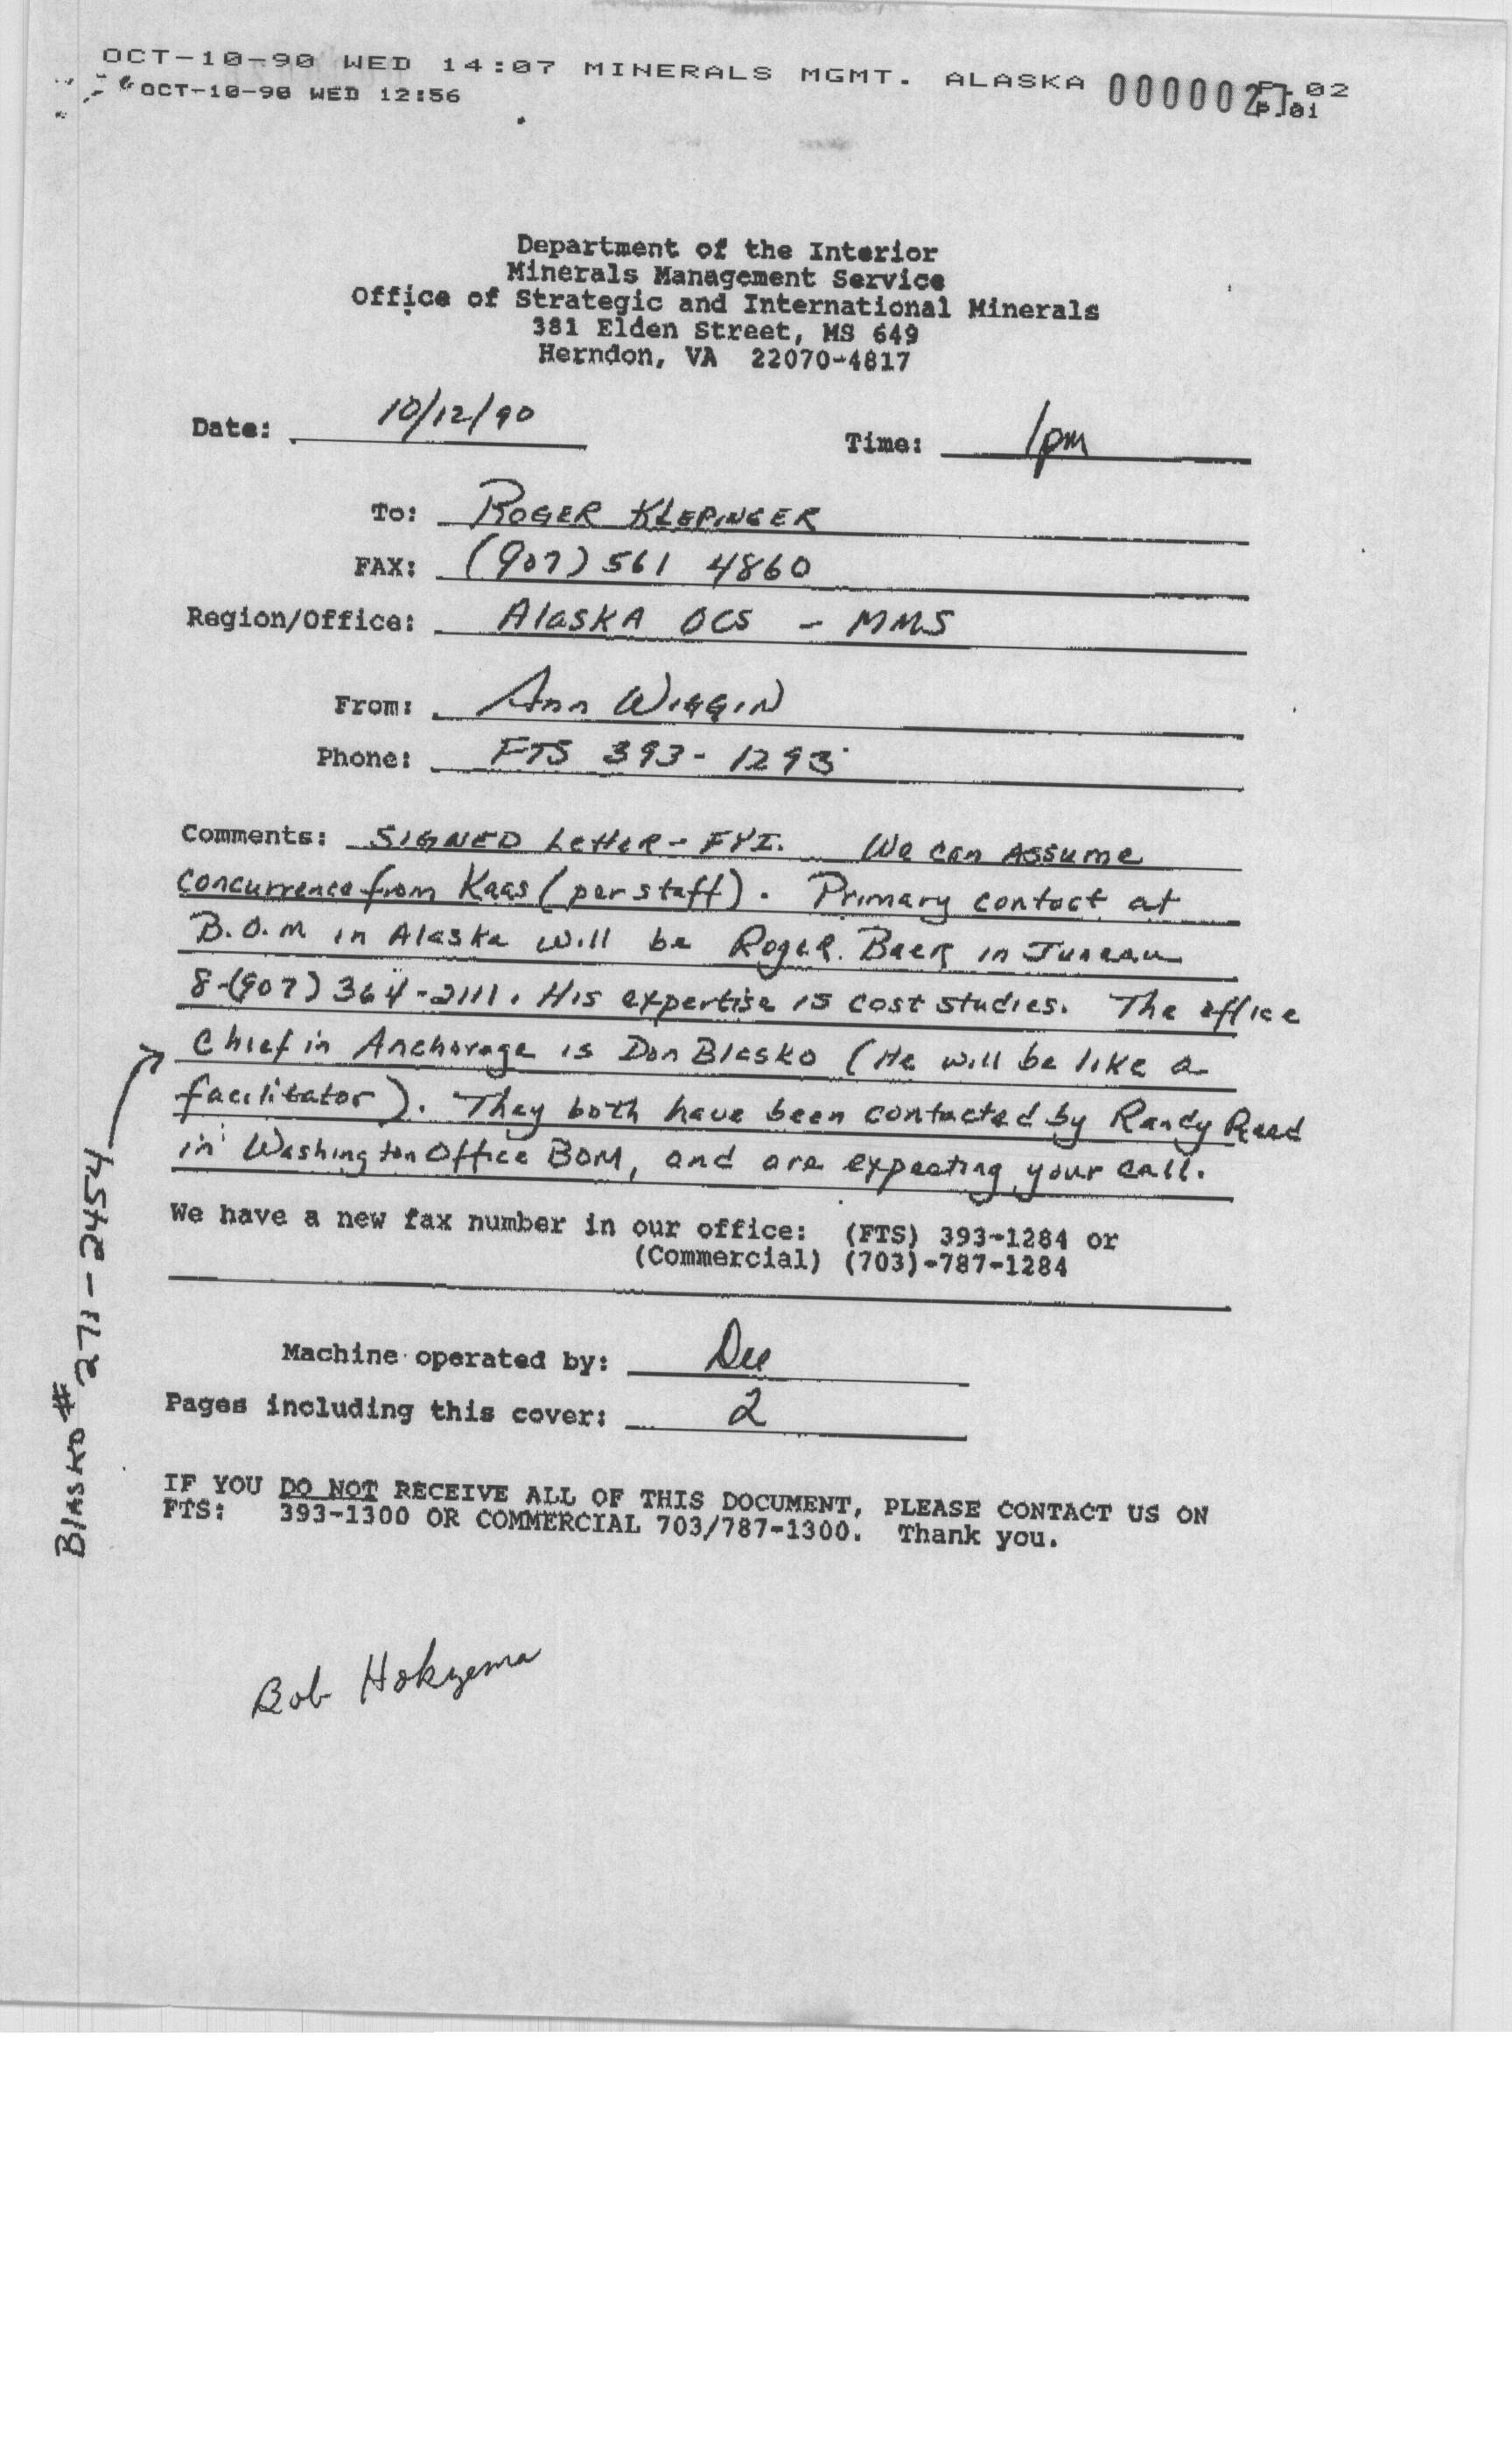 OCT-10-90 WED 14:07 MINERALS MGMT. ALASKA 0000027 P.02
OCT-10-90 WED 12:56 P.01
Department of the Interior
Minerals Management Service
Office of Strategic and International Minerals
381 Elden Street, MS 649
Herndon, VA 22070-4817
Date: 10/12/90 Time: 1pm
To: ROGER KLEPINGER
FAX: (907) 561 4860
Region/Office: AlaskA OCS - MMS
From: Ann WIGGIN
Phone: FTS 393-1293
Comments: SIGNED LetteR - FYI. We can Assume
concurrence from Kaas (per staff). Primary contact at
B.O.M in Alaska will be Roger Baer in Juneau
8-(907) 364-2111. His expertise is cost studies. The office
Chief in Anchorage is Don Blasko (He will be like a
facilitator). They both have been contacted by Randy Reed
in Washington Office BOM, and are expecting your call.
Blasko # 271-2454
We have a new fax number in our office: (FTS) 393-1284 or
(Commercial) (703)-787-1284
Machine operated by: Dee
Pages including this cover: 2
IF YOU DO NOT RECEIVE ALL OF THIS DOCUMENT, PLEASE CONTACT US ON
FTS: 393-1300 OR COMMERCIAL 703/787-1300. Thank you.
Bob Hokzema